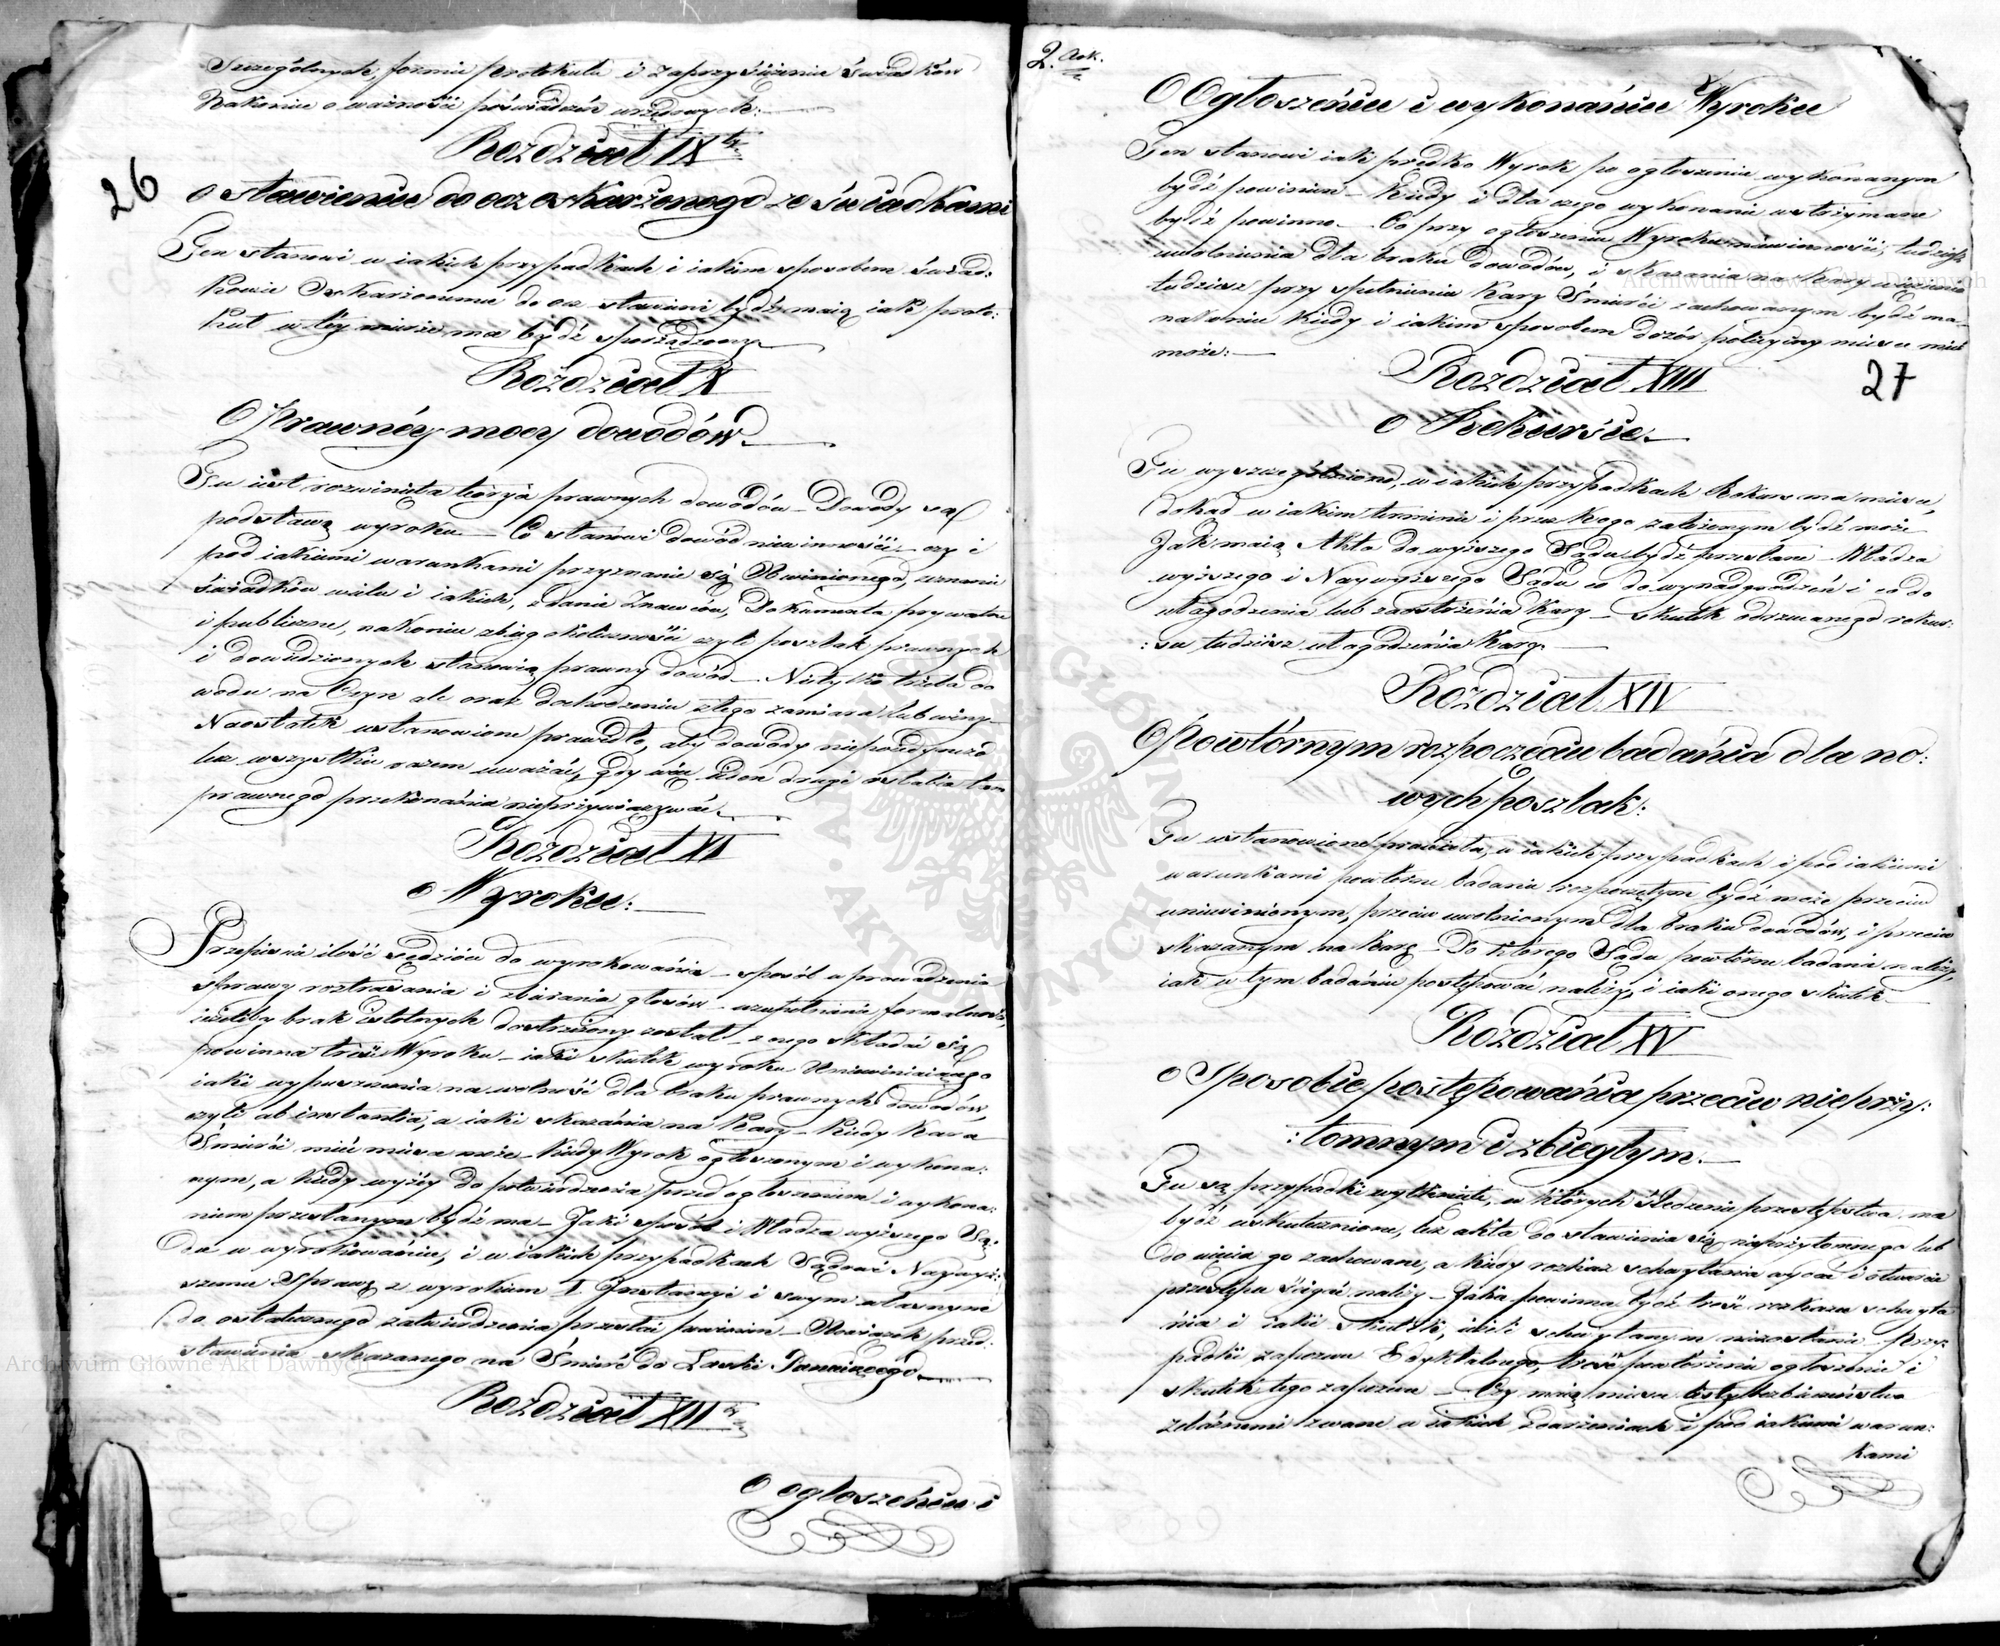 Szczególnych, formie protokułu i zaprzysiężeniu świadków
Nakoniec o ważności poświadczeń urzędowych.
Rozdział IXty
26
o stawieniu do ocz oskarżonego ze świadkami
Ten stanowi w iakich przypadkach i iakim sposobem świad:
kowie Oskarżonemu do ocz stawieni bydź maią iak proto:
kuł w tey mierze ma bydź sporządzony
Rozdział X
O Prawnéy mocy dowodów
Tu iest rozwinięta teorya prawnych dowodów – Dowody są
podstawą wyroku – Co stanowi dowód niewinności – czy i
pod iakiemi warunkami przyznanie się Obwinionego, zeznanie
świadków wielu i iakich, zdanie Znawców, Dokumenta prywatne
i publiczne, nakoniec zbieg okoliczności czyli poszlak prawnych
i dowiedzionych stanowią prawny dowód – Nietylko trzeba do
wodu na Czyn ale oraz dochodzenia złego zamiaru lub winy –
Naostatek ustanowione prawidło, aby dowody niepoiedynczo
lecz wszystkie razem uważać, gdy więc ieden drugi osłabia tam
prawnego przekonania nieprzywiązywać
Rozdział XI
o Wyroku:
Przepisuie ilość sędziów do wyrokowania – sposób uprowadzenia
sprawy roztrząsania i zbierania głosów – uzupełnienie formalności,
ieżeliby brak istotnych dostrzeżony został – z czego składać się
powinna treść Wyroku – iaki skutek wyroku Uniewiniaiącego
iaki wypuszczenia na wolność dla braku prawnych dowodów
czyli ab instantia, a iaki skazania na Karę – kiedy Kara
Śmierci mieć mieysce może – kiedy Wyrok ogłoszonym i wykona:
nym, a kiedy wyżéy do potwierdzenia przed ogłoszeniem i wykona:
niem przesłanym bydź ma – Jaki sposób i Władza wyższego Są:
du w wyrokowaniu, i w iakich przypadkach Sądowi Naywyż:
szemu Sprawę z wyrokiem I. Instancyi i swym własnym
do ostatecznego zatwierdzenia przesłać powinien – Obowiązek przed:
stawienia skazanego na Śmierć do Łaski Panuiącego
Rozdział XIIty
O ogłoszeniu i
2. Ark.
O Ogłoszeniu i wykonaniu Wyroku
Ten stanowi iak prędko Wyrok po ogłoszeniu wykonanym
bydź powinien – Kiedy i dla czego wykonanie wstrzymane
bydź powinno – Co przy ogłoszeniu Wyroku niewinności, tudzież
uwolnienia dla braku dowodów, i skazania na Karę więzienia
tudzież przy spełnieniu Kary Śmierci zachowanym bydź ma –
nakoniec kiedy i iakim sposobem dozór policyiny mieysce mieć
może: –
27
Rozdział XIII
o Rekursie
Tu wyszczególniono, w iakich przypadkach Rekurs ma mieysce,
dokąd w iakim terminie i przez kogo założonym bydź może
Jak maią Akta do wyższego Sądu bydź przesłane – Władza
wyższego i Naywyższego Sądu co do wynadgrodzeń i co do
ułagodzenia lub zaostrzenia Kary – skutek odrzuconego rekur:
:su tudzież ułagodzenia Kary
Rozdział XIV
O Powtórnym rozpoczęciu badania dla no:
wych poszlak:
Tu ustanowione prawidła, w iakich przypadkach i pod iakiemi
warunkami powtórne badanie rozpoczętym bydź może przeciw
uniewinionym, przeciw uwolnionym dla braku dowodów, i przeciw
skazanym na Karę – Do którego Sądu powtórne badanie należy,
iak w tym badaniu postępować należy, i iaki onego skutek –
Rozdział XV
o Sposobie postępowania przeciw nieprzy:
:tomnym i zbiegłym.
Tu są przypadki wytknięte, w których śledzenie przestępstwa ma
bydź uskutecznione, lecz akta do stawienia się nieprzytomnego lub
do uięcia go zachowane, a kiedy rozkaz schwytania wydać i otwarcie
przestępcę ścigać należy – Jaka powinna bydź treść rozkazu schwyta
nia i iaki skutek, ieżeli schwytanym niezostanie – Przy:
padki zapozwu Edyktalnego, treść powtórzenie ogłoszenie i
skutek tego zapozwu – Czy maią mieysce listy bezbieczeństwa
żelaznemi zwane w iakich zdarzeniach i pod iakiemi warun:
kami